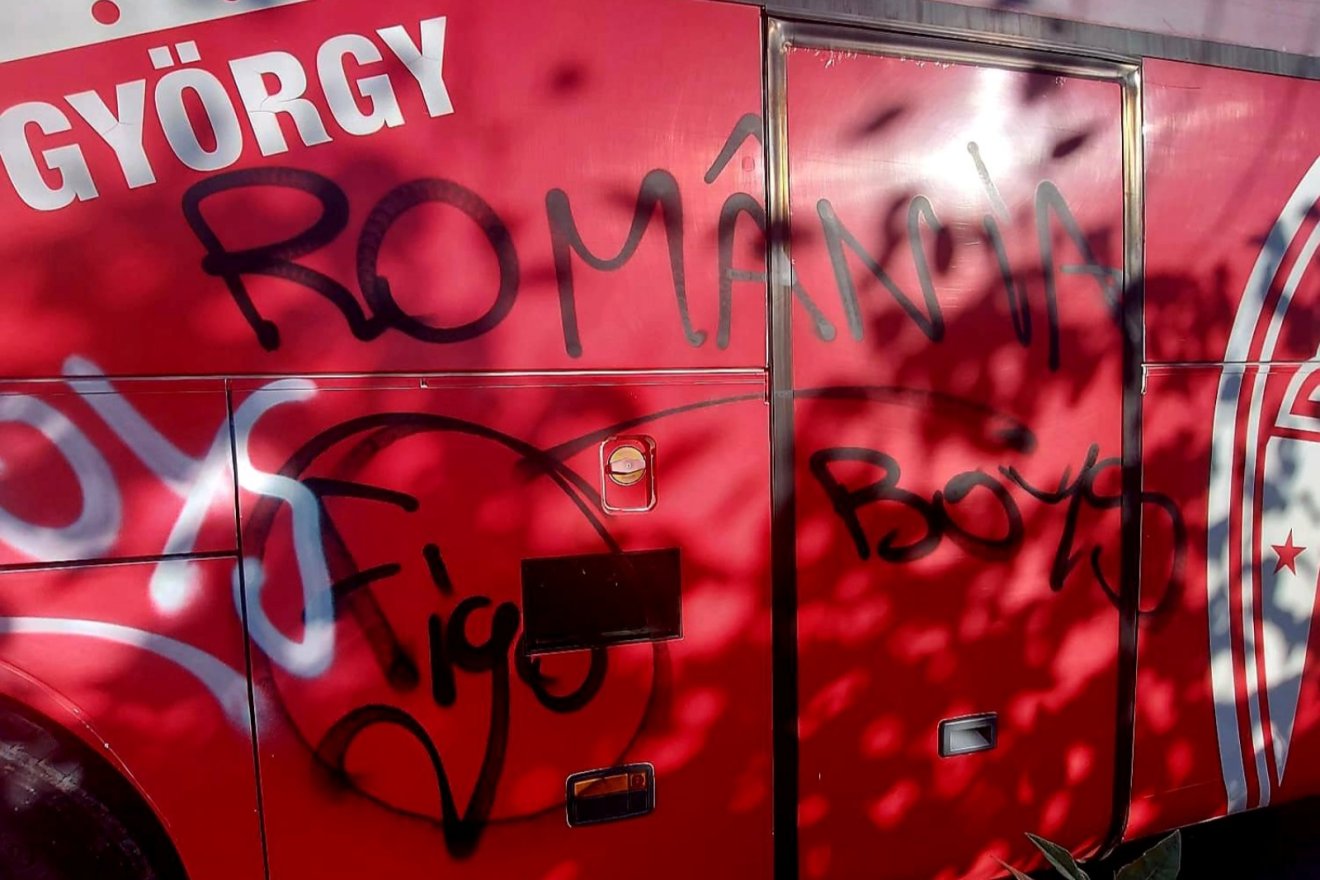 GYÖRGY
ROMÂNIA
Figo
BOYS